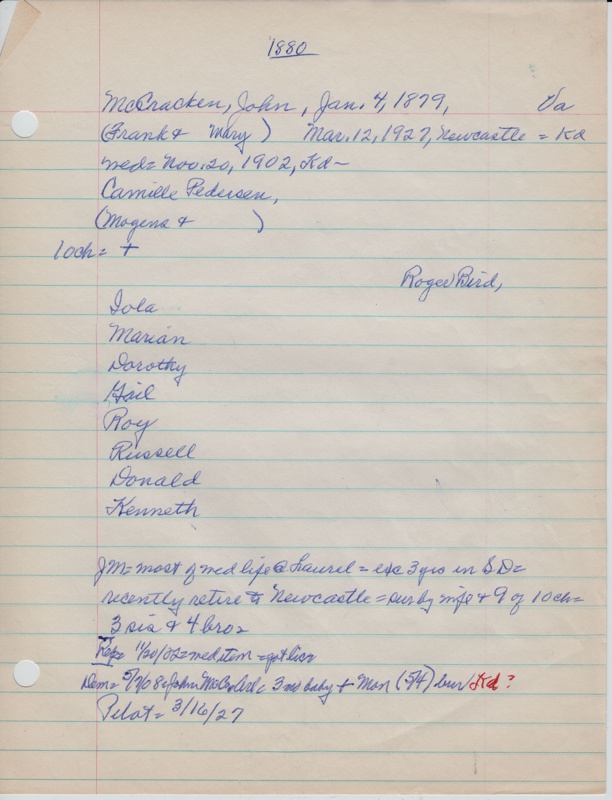 1880
McCracken, John, Jan. 4, 1879, Va
(Frank & Mary) Mar. 12, 1927, Newcastle = Kd
wed = Nov. 20, 1902, Kd -
Camille Pedersen,
(Mogens & )
10ch = +
Roger Bird,
Iola
Marian
Dorothy
Gail
Roy
Russell
Donald
Kenneth
JM = most of wed life @ Laurel = exc 3 yrs in SD =
recently retire to Newcastle = sur by wife & 9 of 10ch =
3 sis & 4 bros
Rep = 11/20/02 = wed item = got lics
Dem = 5/7/08 = John 3 mo baby + Mon (5/4) bur Kd?
Pilot = 3/16/27